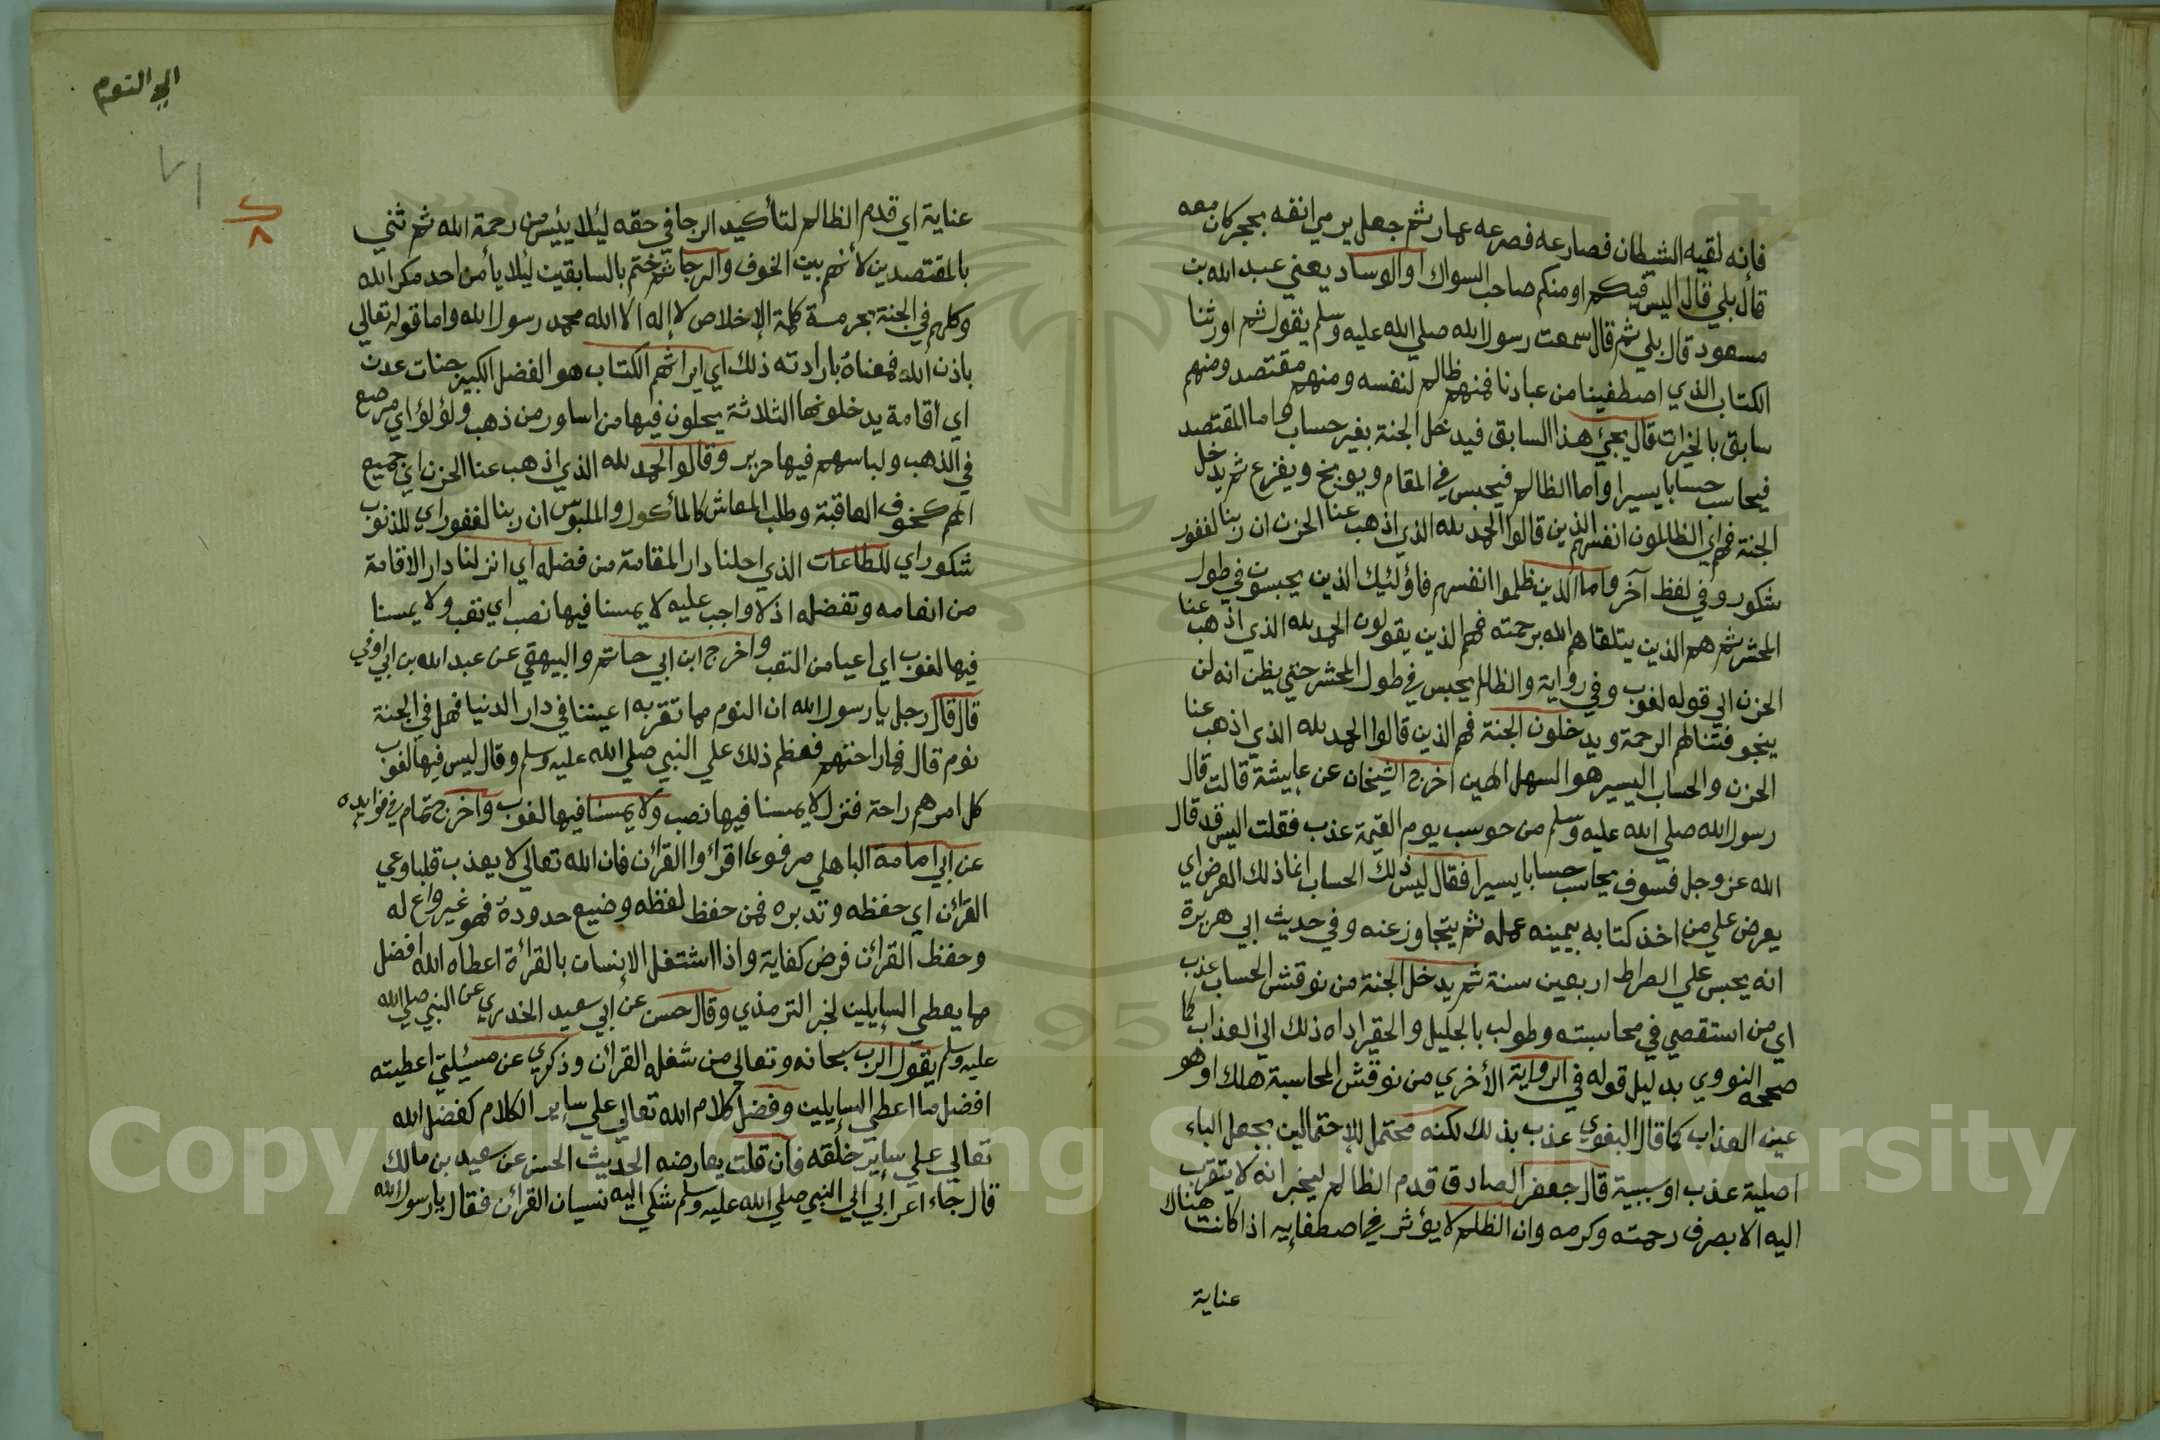 فانه لقيه الشيطان فصارعه فصرعه عمار ثم جعل يرمي انفه بحجر كان معه
قال بلي قال اليس فيكم او منكم صاحب السواك او الوساد يعني عبد الله بن
مسعود قال بلي ثم قال سمعت رسول الله صلي الله عليه وسلم يقول ثم اورثنا
الكتاب الذي اصطفينا من عبادنا فمنهم ظالم لنفسه ومنهم مقتصد ومنهم
سابق بالخيرات قال يجئ هذا السابق فيدخل الجنة بغير حساب واما المقتصد
فيحاسب حسابا يسيرا واما الظالم فيحبس في المقام ويوبخ ويفزع ثم يدخل
الجنة فهم اي الظالمون انفسهم الذين قالوا الحمد لله الذي اذهب عنا الحزن ان ربنا لغفور
شكور وفي لفظ آخر واما الذين ظلموا انفسهم فاؤلئيك الذين يحبسون في طول
المحشر ثم هم الذين يتلقاهم الله برحمته فهم الذين يقولون الحمد لله الذي اذهب عنا
الحزن الي قوله لغوب وفي رواية والظالم يحبس في طول المحشر حتي يظن انه لن
ينجو فتنالهم الرحمة ويدخلون الجنة فهم الذين قالوا الحمد لله الذي اذهب عنا
الحزن والحساب اليسير هو السهل الهين اخرج الشيخان عن عايشة قالت قال
رسول الله صلي الله عليه وسلم من حوسب يوم القيمة عذب فقلت اليس قد قال
الله عز وجل فسوف يحاسب حسابا يسيرا فقال ليس ذلك الحساب انما ذلك العرض اي
يعرض علي من اخذ كتابه بيمينه عمله ثم يتجاوز عنه وفي حديث ابي هريرة
انه يحبس علي الصراط اربعين سنة ثم يدخل الجنة من نوقش الحساب عذب
اي من استقصي في محاسبته وطولب بالجليل والحقير اداه ذلك الي العذاب كما
صححه النووي بدليل قوله في الرواية الأخري من نوقش المحاسبة هلك او هو
عين العذاب كما قال البغوي عذب بذلك لكنه محتمل للإحتمالين بجعل الباء
اصلية عذب او سببية قال جعفر الصادق قدم الظالم ليخبر انه لا يتقرب
اليه الا بصرف رحمته وكرمه وان الظلم لا يؤثر في اصطفايه اذا كانت هناك
عناية
الي النوم
٧١
عناية اي قدم الظالم لتأكيد الرجا في حقه ليئلا ييئس من رحمة الله ثم ثني
بالمقتصدين لأنهم بين الخوف والرجا ثم ختم بالسابقين ليئلا يأمن احد مكر الله
وكلهم في الجنة بحرمة كلمة الإخلاص لا إله الا الله محمد رسول الله واما قوله تعالي
باذن الله فمعناه بارادته ذلك اي ايراثهم الكتاب هو الفضل الكبير جنات عدن
اي اقامة يدخلونها الثلاثة يحلون فيها من اساور من ذهب ولؤلؤ اي مرصع
في الذهب ولباسهم فيها حرير وقالوا الحمد لله الذي اذهب عنا الحزن اي جميع
الهم كخوف العاقبة وطلب المعاش كالمأكول والملبوس ان ربنا لغفور اي للذنوب
شكور اي للطاعات الذي احلنا دار المقامة من فضله اي انزلنا دار الاقامة
من انعامه وتفضله اذ لا واجب عليه لا يمسنا فيها نصب اي تعب ولا يمسنا
فيها لغوب اي اعيا من التعب واخرج ابن ابي حاتم والبيهقي عن عبد الله بن ابي اوفي
قال قال رجل يا رسول الله ان النوم مما تقر به اعيننا في دار الدنيا فهل في الجنة
نوم قال فما راحتهم فعظم ذلك علي النبي صلي الله عليه وسلم وقال ليس فيها لغوب
كل امرهم راحة فنزل لا يمسنا فيها نصب ولا يمسنا فيها لغوب واخرج تمام في فوايده
عن ابي امامة الباهلي مرفوعا اقرأوا القرآن فان الله تعالي لا يعذب قلبا وعي
القرآن اي حفظه وتدبره فمن حفظ لفظه وضيع حدوده فهو غير واع له
وحفظ القرآن فرض كفاية واذا اشتغل الإنسان بالقرائة اعطاه الله افضل
ما يعطي السايلين لخبر الترمذي وقال حسن عن ابي سعيد الخدري عن النبي صلي الله
عليه وسلم يقول الرب سبحانه وتعالي من شغله القرآن وذكري عن مسئيلتي اعطيته
افضل ما اعطي السايلين وفضل كلام الله تعالي علي ساير الكلام كفضل الله
تعالي علي ساير خلقه فأن قلت يعارضه الحديث الحسن عن سعيد بن مالك
قال جاء اعرابي الي النبي صلي الله عليه وسلم شكي اليه نسيان القرآن فقال يا رسول الله
Copyright © King Saud University